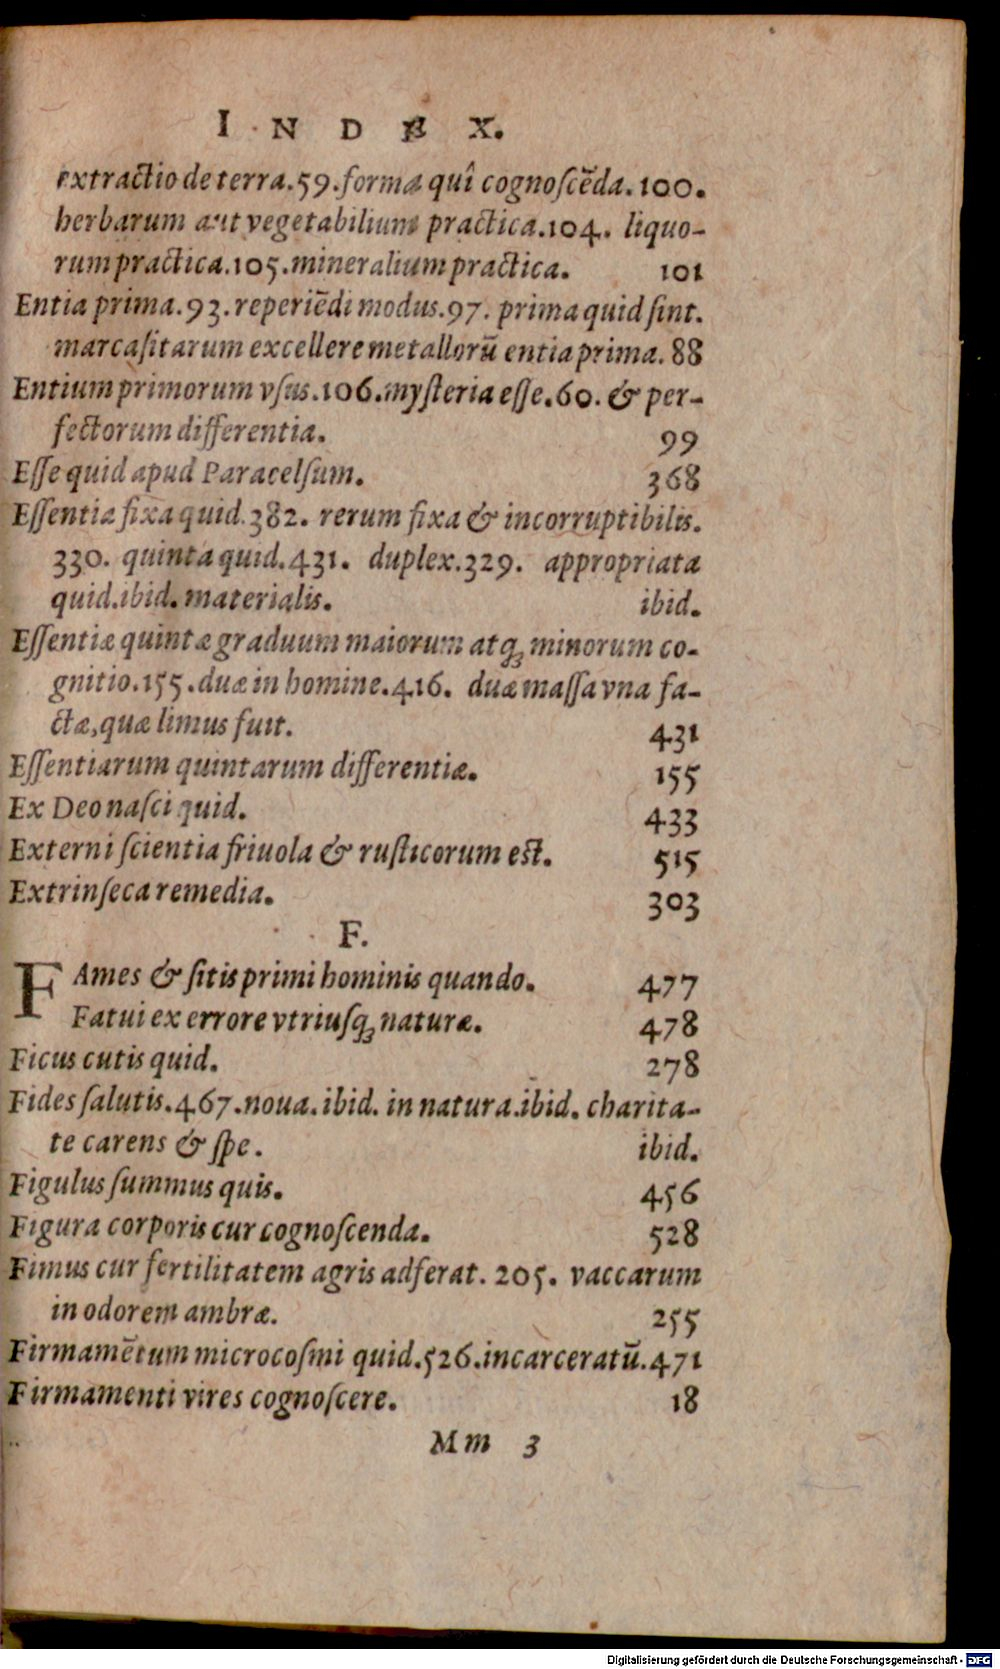 INDEX.
extractio de terra.59.forma quî cognoſcẽda.100.
herbarum aut vegetabilium practica.104. liquo-
rum practica.105.mineralium practica. 101
Entia prima.93.reperiẽdi modus.97. prima quid ſint.
marcaſitarum excellere metallorũ entia prima. 88
Entium primorum vſus.106.myſteria eſſe.60. & per-
fectorum differentia. 99
Eſſe quid apud Paracelſum. 368
Eſſentia fixa quid.382. rerum fixa & incorruptibilis.
330. quinta quid.431. duplex.329. appropriata
quid.ibid. materialis. ibid.
Eſſentiæ quintæ graduum maiorum atꝗ minorum co-
gnitio.155.duæ in homine.416. duæ maſſa vna fa-
ctæ,quæ limus fuit. 431
Eſſentiarum quintarum differentiæ. 155
Ex Deo naſci quid. 433
Externi ſcientia friuola & ruſticorum est. 515
Extrinſeca remedia. 303
F.
FAmes & ſitis primi hominis quando. 477
Fatui ex errore vtriuſꝗ naturæ. 478
Ficus cutis quid. 278
Fides ſalutis.467.noua.ibid. in natura.ibid. charita-
te carens & ſpe. ibid.
Figulus ſummus quis. 456
Figura corporis cur cognoſcenda. 528
Fimus cur fertilitatem agris adferat. 205. vaccarum
in odorem ambræ. 255
Firmamẽtum microcoſmi quid.526.incarceratũ.471
Firmamenti vires cognoſcere. 18
Mm 3
Digitalisierung gefördert durch die Deutsche Forschungsgemeinschaft - DFG